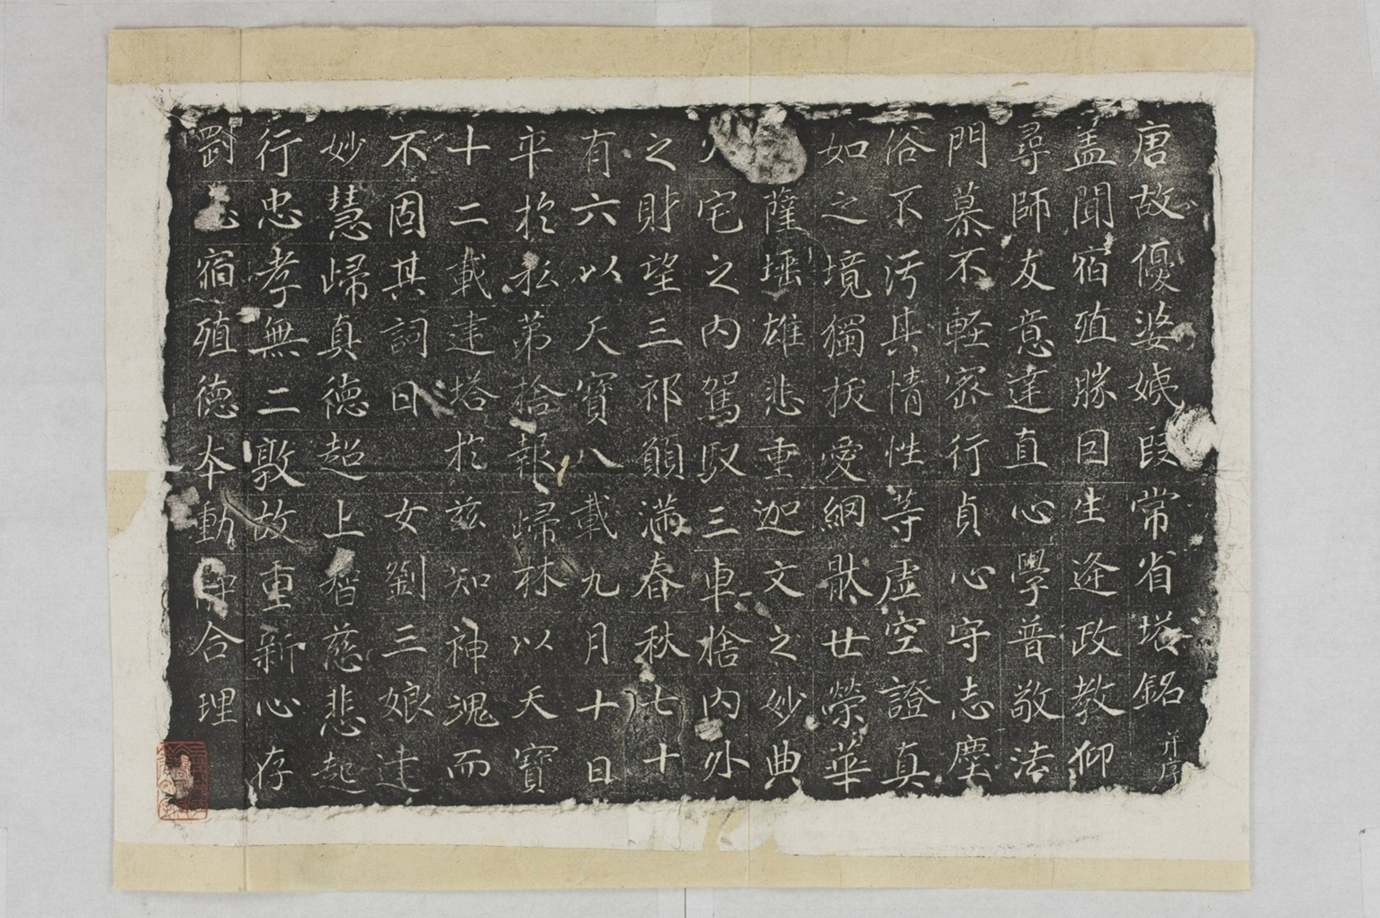 唐故優婆姨段常省塔銘并序
盖聞宿殖勝因生逢政教仰
尋師友意達直心學普敬法
門慕不輕密行貞心守志塵
俗不污其情性等虚空證真
如之境獨拔愛綱猒世榮華
薩埵雄悲重迦文之妙典
宅之内駕馭三車捨内外
之財望三祁願滿春秋七十
有六以天寶八載九月十日
卒於私第捨報歸林以天寶
十二載建塔於兹知神魂而
不固其詞曰 女劉三娘建
妙慧歸真德超上智慈悲起
行忠孝無二敦故重新心存
罰宿殖德夲動合理